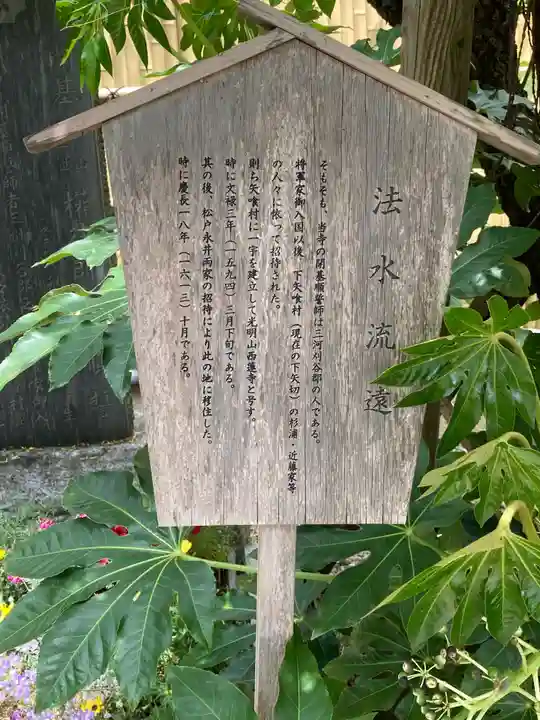 法水流遠
そもそも、当寺の開基順誓師は三河刈谷郡の人である。
将軍家御入国以後、下矢喰村（現在の下矢切）の杉浦・近藤家等
の人々に依って招待された。
則ち矢喰村に一宇を建立して光明山西蓮寺と号す。
時に文禄三年（一五九四）三月下旬である。
其の後、松戸永井両家の招待により此の地に移住した。
時に慶長一八年（一六一三）十月である。
墓